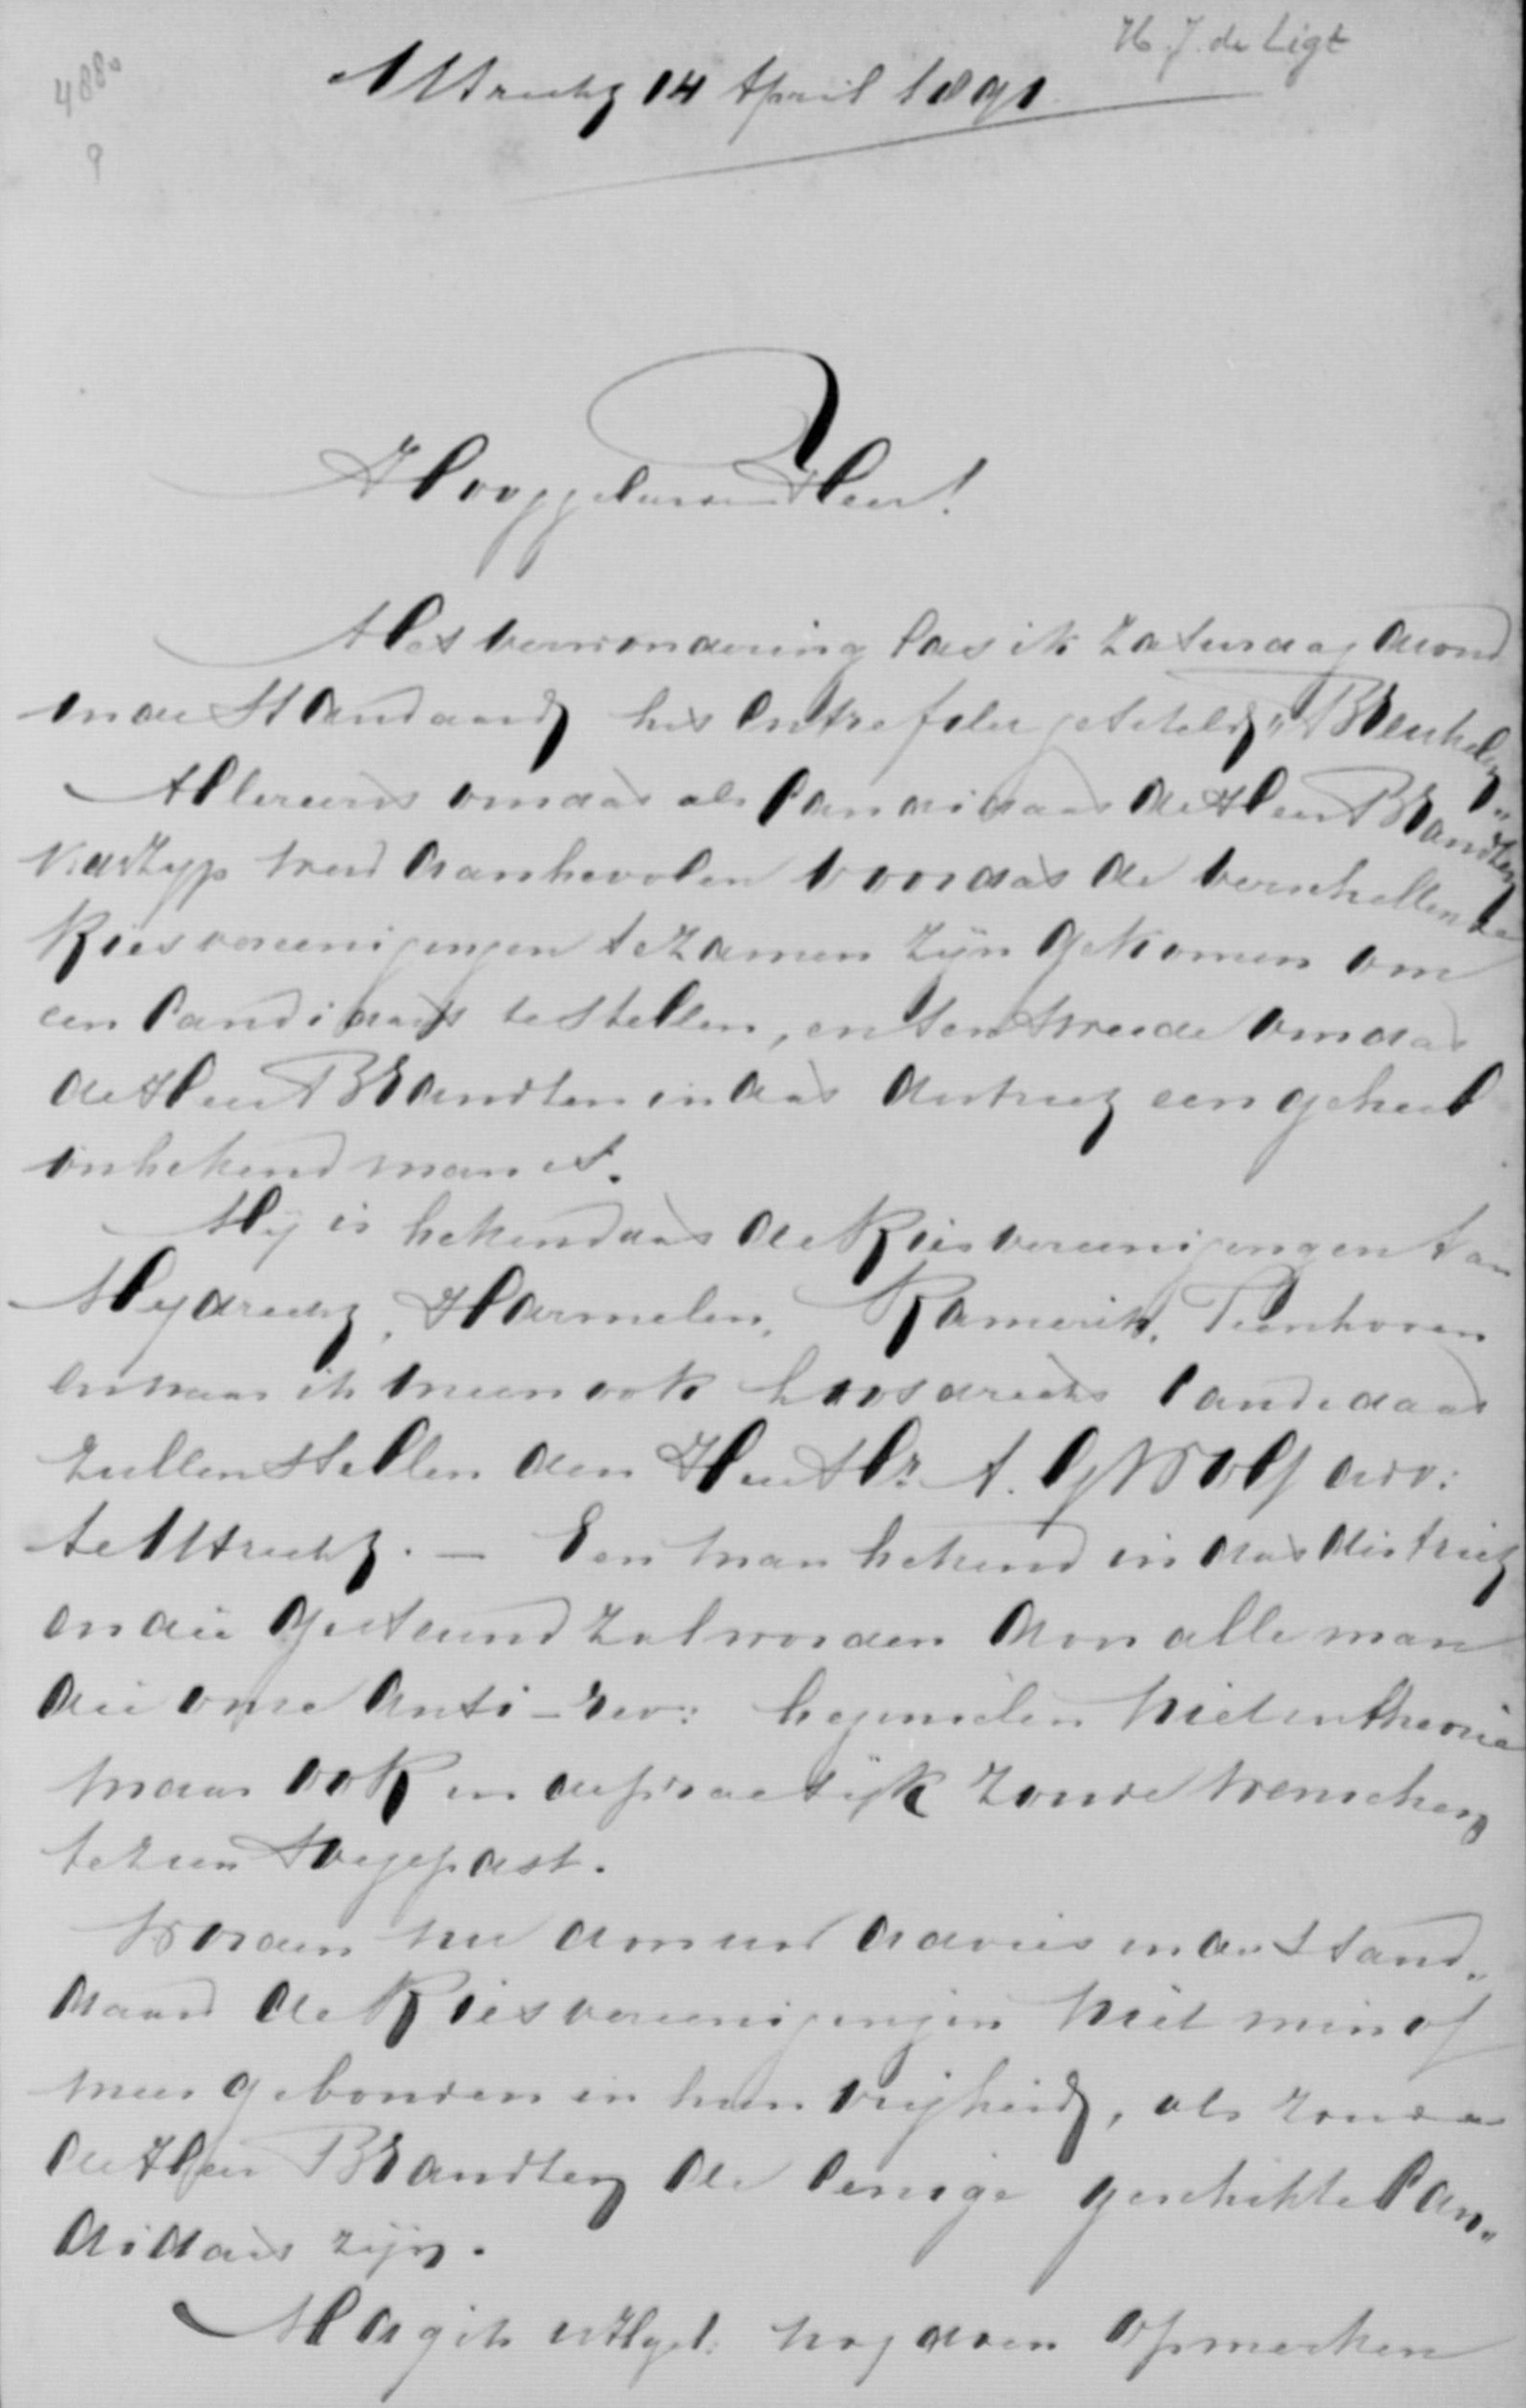 H. J. de Ligt
4880
Utrecht 14 April 1891
Hooggeleerde Heer!
Met verwondering las ik Zaturdag avond
in de Standaard het entrefilet getiteld "Breukelen"
Allereerst omdat als Candidaat de Heer Brandts
werd aanbevolen voordat de verschillende
Kiesvereenigingen te zamen zijn gekomen om
een Candidaat te stellen, en ten tweede omdat
de Heer Brandten in dat district een geheel
onbekend man is.
Mij is bekend dat de Kiesvereenigingen van
Mijdrecht, Harmelen, Kamerik, Tienhoven
en naar ik meen ook Loosdrecht Candidaat
zullen stellen den Heer Mr. A. G Wolf adv:
te Utrecht. — Een man bekend in dat district
en die gesteund zal worden door alle man
die onze Anti-rev: beginselen niet in theorie
maar ook in de practijk zoude wenschen
te zien toegepast.
Worden nu door uw advies in de Stand„
aard de Kiesvereenigingen niet min of
meer gebonden in hun vrijheid, als zoude
de Heer Brandten de eenige geschikte Can„
didaat zijn.
Mag ik UHgel: nog doen opmerken